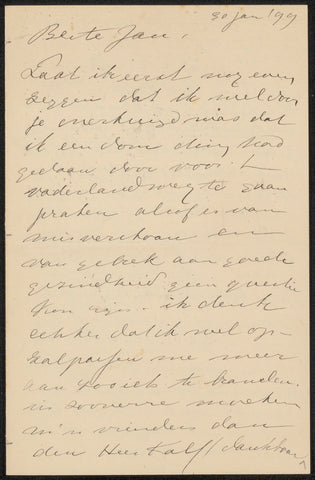 30 jan '99
Beste Jan,
Laat ik eerst nog even
zeggen dat ik wel door
je overtuigd was dat
ik een dom ding had
gedaan door voor 't
vaderland weg te gaan
praten alsof er van
misverstaan en
van gebrek aan goede
gezindheid geen quaestie
kon zijn. ik denk
echter dat ik wel op-
zal passen me meer
aan zooiets te branden.
in zooverre moeten
m'n vrienden dan
den Heer Kalff dankbaar